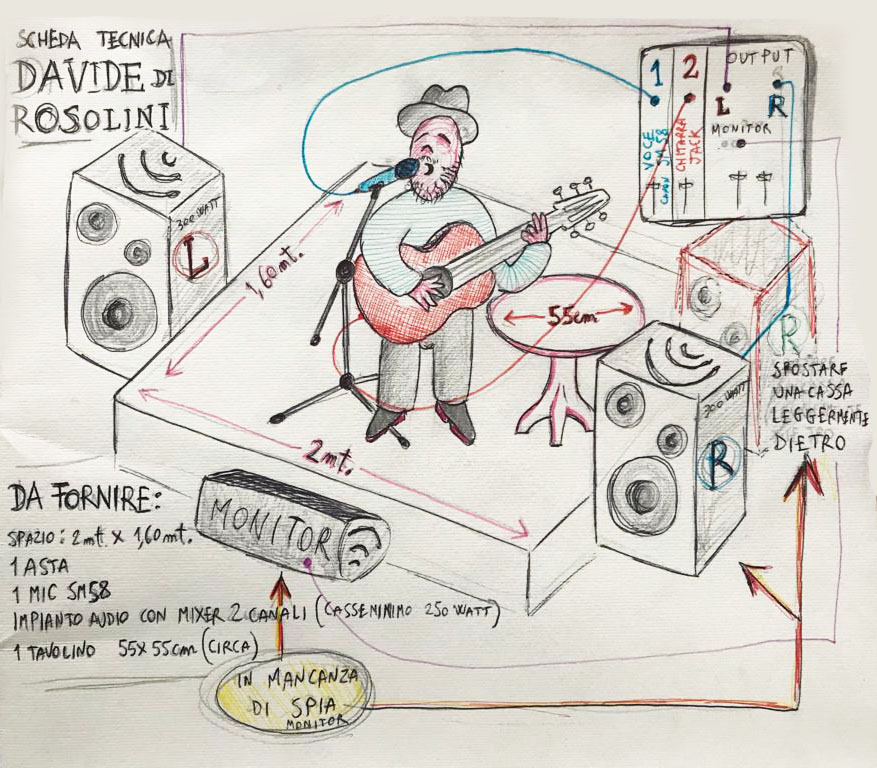 SCHEDA TECNICA
DAVIDE DI
ROSOLINI
1
2
OUTPUT
L
R
MONITOR
VOCE
CANON SM58
CHITARRA
JACK
300 WATT
L
1,60 mt.
55cm
2 mt.
R
300 WATT
R
SPOSTARE
UNA CASSA
LEGGERMENTE
DIETRO
MONITOR
DA FORNIRE:
SPAZIO: 2 mt. X 1,60 mt.
1 ASTA
1 MIC SM58
IMPIANTO AUDIO CON MIXER 2 CANALI (CASSE MINIMO 250 WATT)
1 TAVOLINO 55X55cm (CIRCA)
IN MANCANZA
DI SPIA
MONITOR